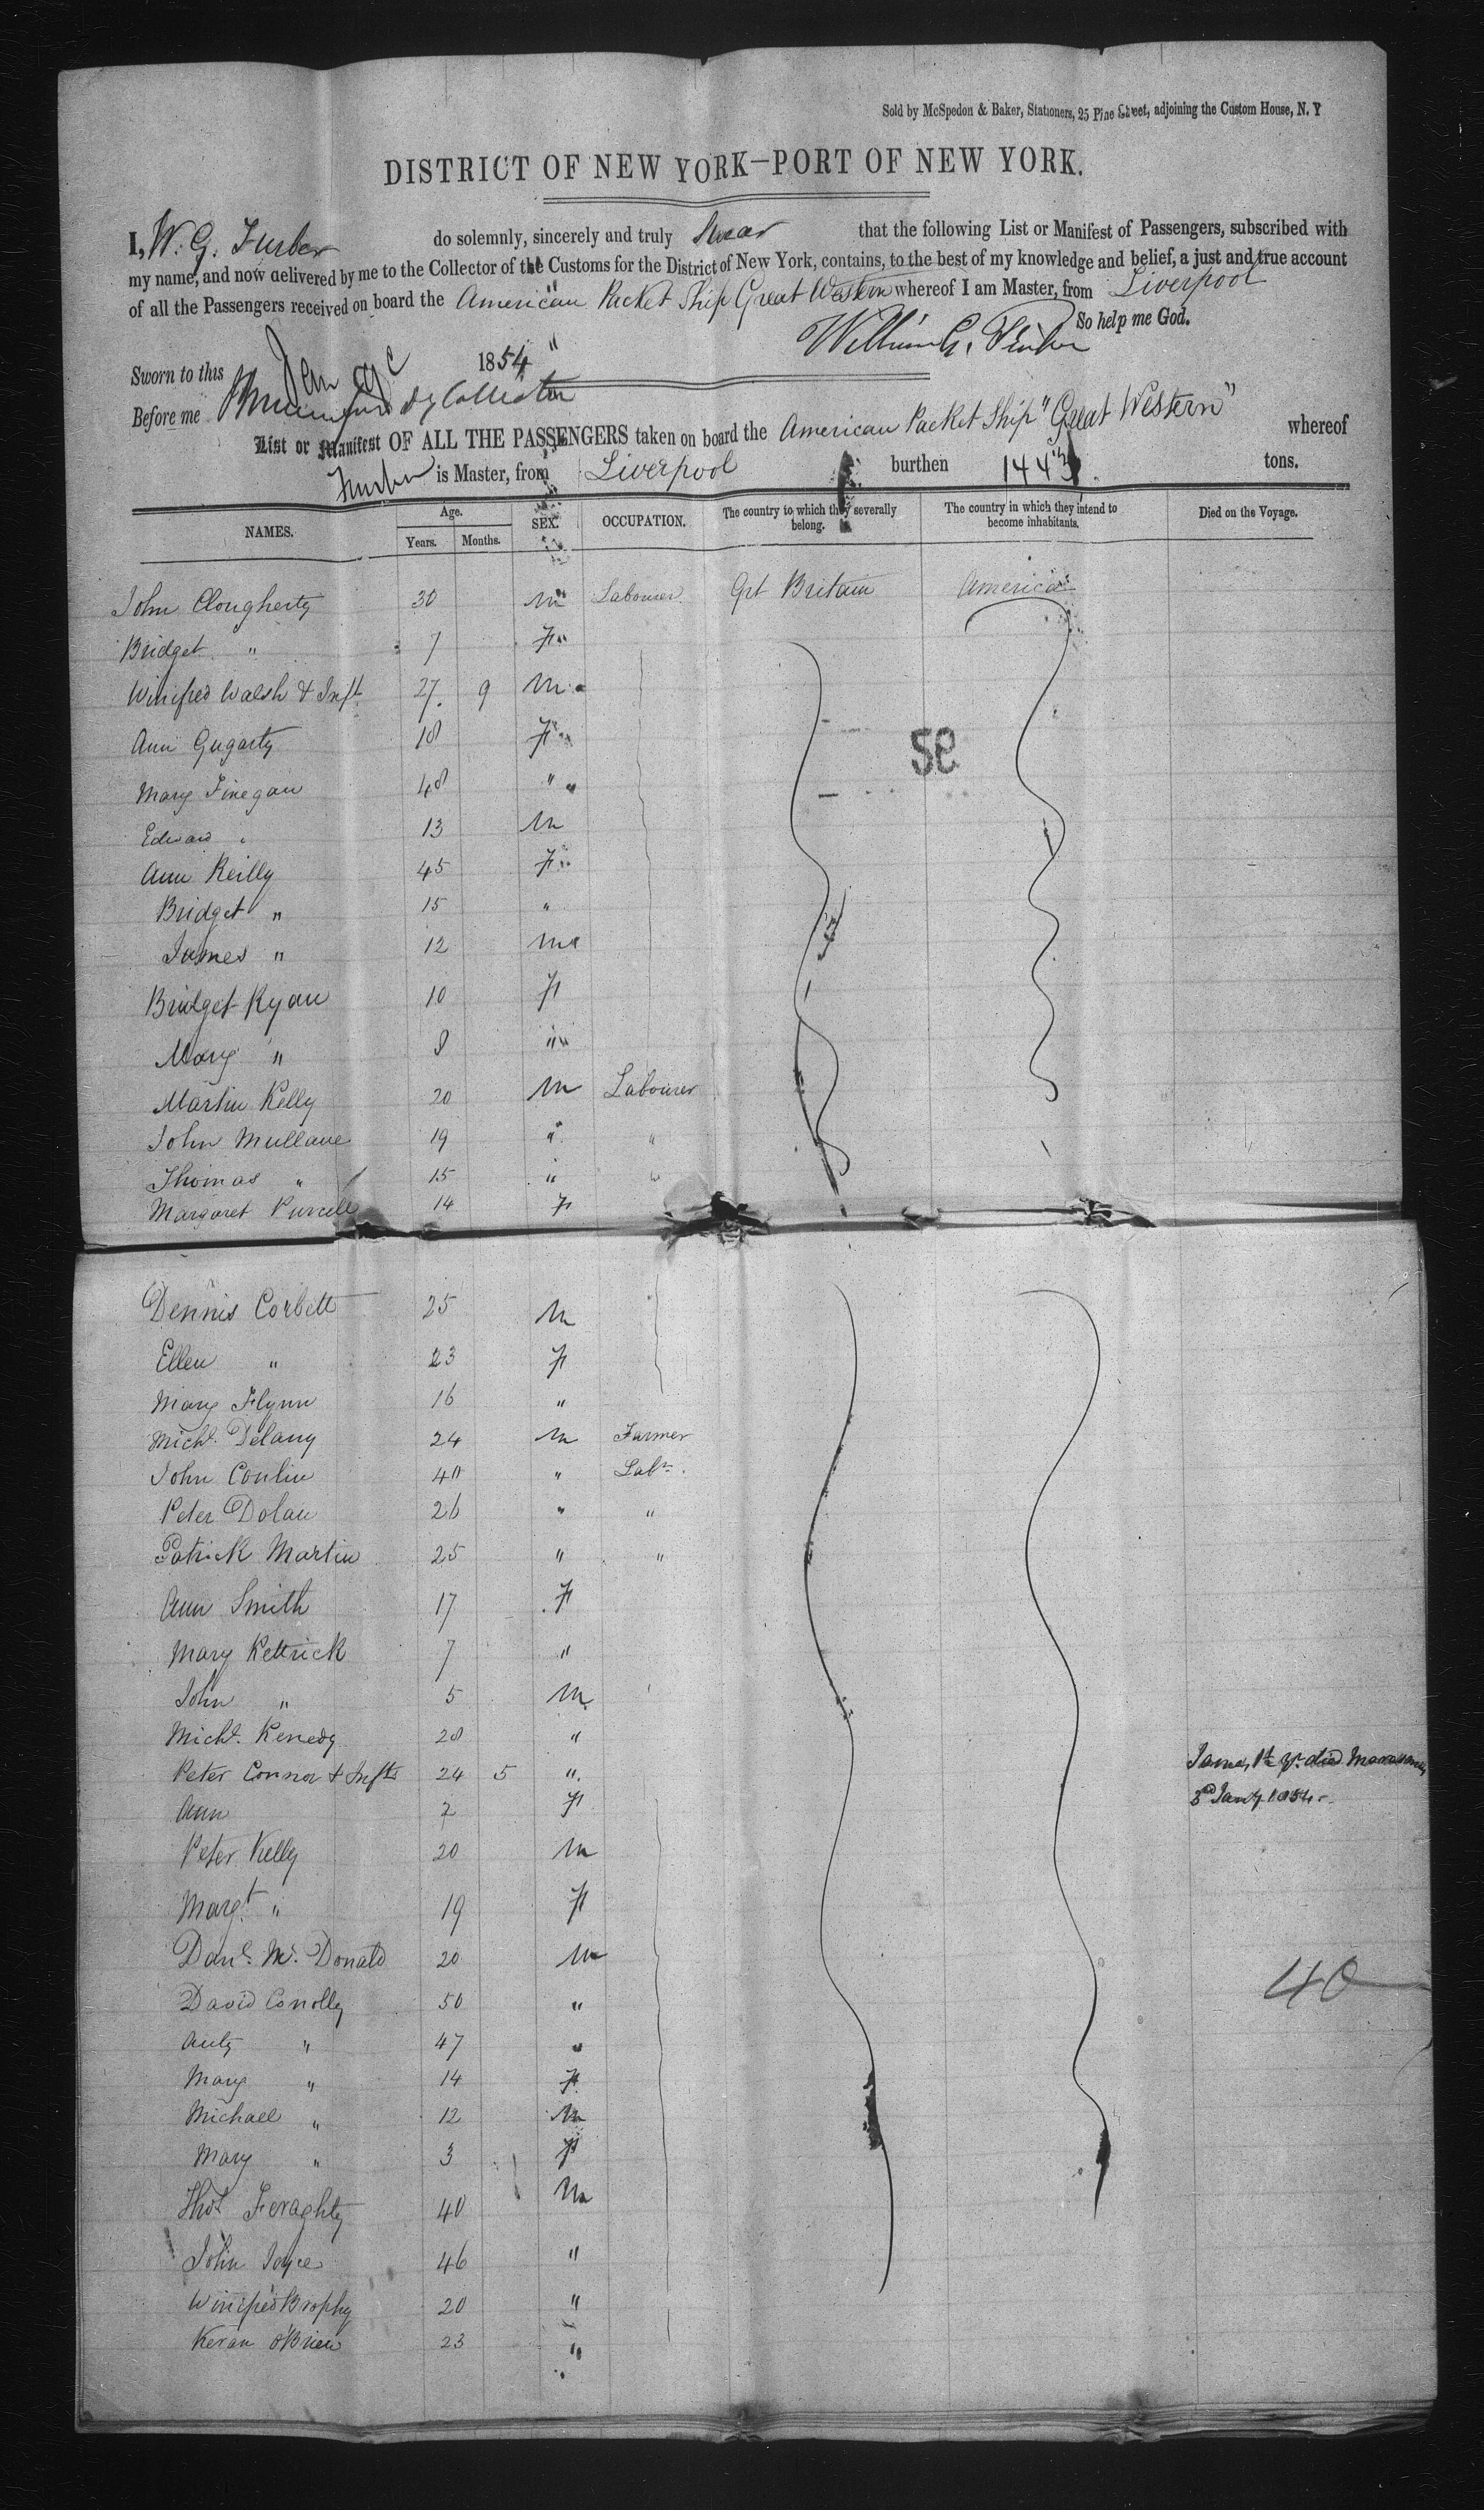 Sold by McSpedon & Baker, Stationers, 25 Pine Street, adjoining the Custom House, N. Y
DISTRICT OF NEW YORK—PORT OF NEW YORK.
I, W. G. Furber do solemnly, sincerely and truly Swear that the following List or Manifest of Passengers, subscribed with
my name, and now delivered by me to the Collector of the Customs for the District of New York, contains, to the best of my knowledge and belief, a just and true account
of all the Passengers received on board the American Packet Ship Great Western whereof I am Master, from Liverpool
So help me God.
William G. Furber
Sworn to this Jan 1854
Before me Dy Collector
List or Manifest OF ALL THE PASSENGERS taken on board the American Packet Ship "Great Western" whereof
Furber is Master, from Liverpool burthen 1443 tons.
NAMES. Age. Years. Months. SEX. OCCUPATION. The country to which they severally belong. The country in which they intend to become inhabitants. Died on the Voyage.
John Clougherty 30 m Labourer Grt Britain America
Bridget " 7 F
Winifred Walsh & Inft 27 9 m
Ann Gugarty 18 F
Mary Finegan 48 "
Edward " 13 m
Ann Reilly 45 F
Bridget " 15 "
James " 12 m
Bridget Ryan 10 F
Mary " 8 "
Martin Kelly 20 m Labourer
John Mullane 19 " "
Thomas " 15 " "
Margaret Purcell 14 F
Dennis Corbett 25 m
Ellen " 23 F
Mary Flynn 16 "
Michl. Delany 24 m Farmer
John Conlin 40 " Labr.
Peter Dolan 26 " "
Patrick Martin 25 " "
Ann Smith 17 F
Mary Kettrick 7 "
John " 5 m
Michl. Kenedy 28 "
Peter Connor & Infts 24 5 " James, 1 yr. died
Ann 2 F 3rd Jany 1854
Peter Kelly 20 m
Margt. " 19 F
Danl. Mc. Donald 20 m
David Conolly 50 "
Anty " 47 "
Mary " 14 F
Michael " 12 m
Mary " 3 F
Thos Feraghty 40 m
John Joyce 46 "
Winifred Brophy 20 "
Keran O'Brien 23 "
40